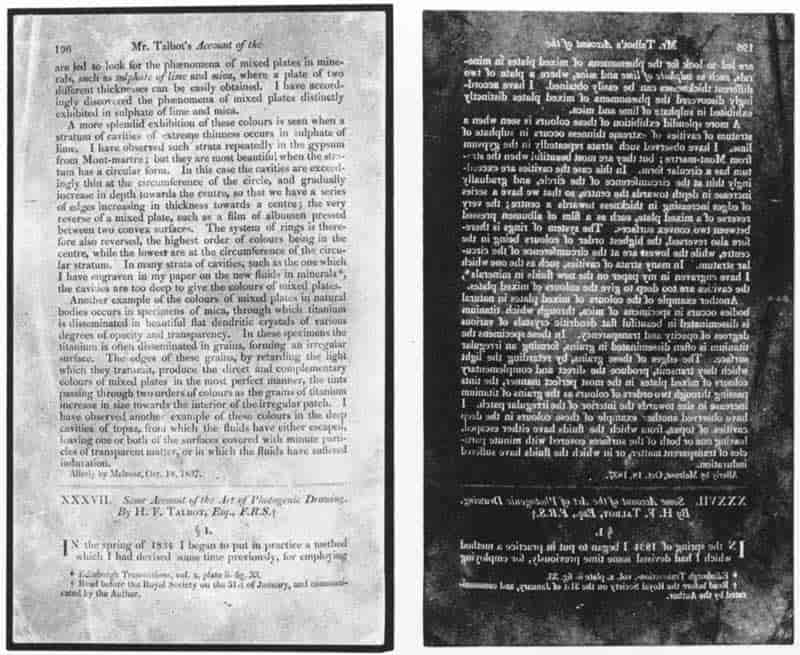 196 Mr. Talbot's Account of the
are led to look for the phænomena of mixed plates in mine-
rals, such as sulphate of lime and mica, where a plate of two
different thicknesses can be easily obtained. I have accord-
ingly discovered the phænomena of mixed plates distinctly
exhibited in sulphate of lime and mica.
A more splendid exhibition of these colours is seen when a
stratum of cavities of extreme thinness occurs in sulphate of
lime. I have observed such strata repeatedly in the gypsum
from Mont-martre; but they are most beautiful when the stra-
tum has a circular form. In this case the cavities are exceed-
ingly thin at the circumference of the circle, and gradually
increase in depth towards the centre, so that we have a series
of edges increasing in thickness towards a centre; the very
reverse of a mixed plate, such as a film of albumen pressed
between two convex surfaces. The system of rings is there-
fore also reversed, the highest order of colours being in the
centre, while the lowest are at the circumference of the circu-
lar stratum. In many strata of cavities, such as the one which
I have engraven in my paper on the new fluids in minerals*,
the cavities are too deep to give the colours of mixed plates.
Another example of the colours of mixed plates in natural
bodies occurs in specimens of mica, through which titanium
is disseminated in beautiful flat dendritic crystals of various
degrees of opacity and transparency. In these specimens the
titanium is often disseminated in grains, forming an irregular
surface. The edges of these grains, by retarding the light
which they transmit, produce the direct and complementary
colours of mixed plates in the most perfect manner, the tints
passing through two orders of colours as the grains of titanium
increase in size towards the interior of the irregular patch. I
have observed another example of these colours in the deep
cavities of topaz, from which the fluids have either escaped,
leaving one or both of the surfaces covered with minute parti-
cles of transparent matter, or in which the fluids have suffered
induration.
Allerly by Melrose, Oct. 18, 1837.
XXXVII. Some Account of the Art of Photogenic Drawing.
By H. F. TALBOT, Esq., F.R.S.†
§ 1.
IN the spring of 1834 I began to put in practice a method
which I had devised some time previously, for employing
* Edinburgh Transactions, vol. x. plate ii. fig. XI.
† Read before the Royal Society on the 31st of January, and communi-
cated by the Author.